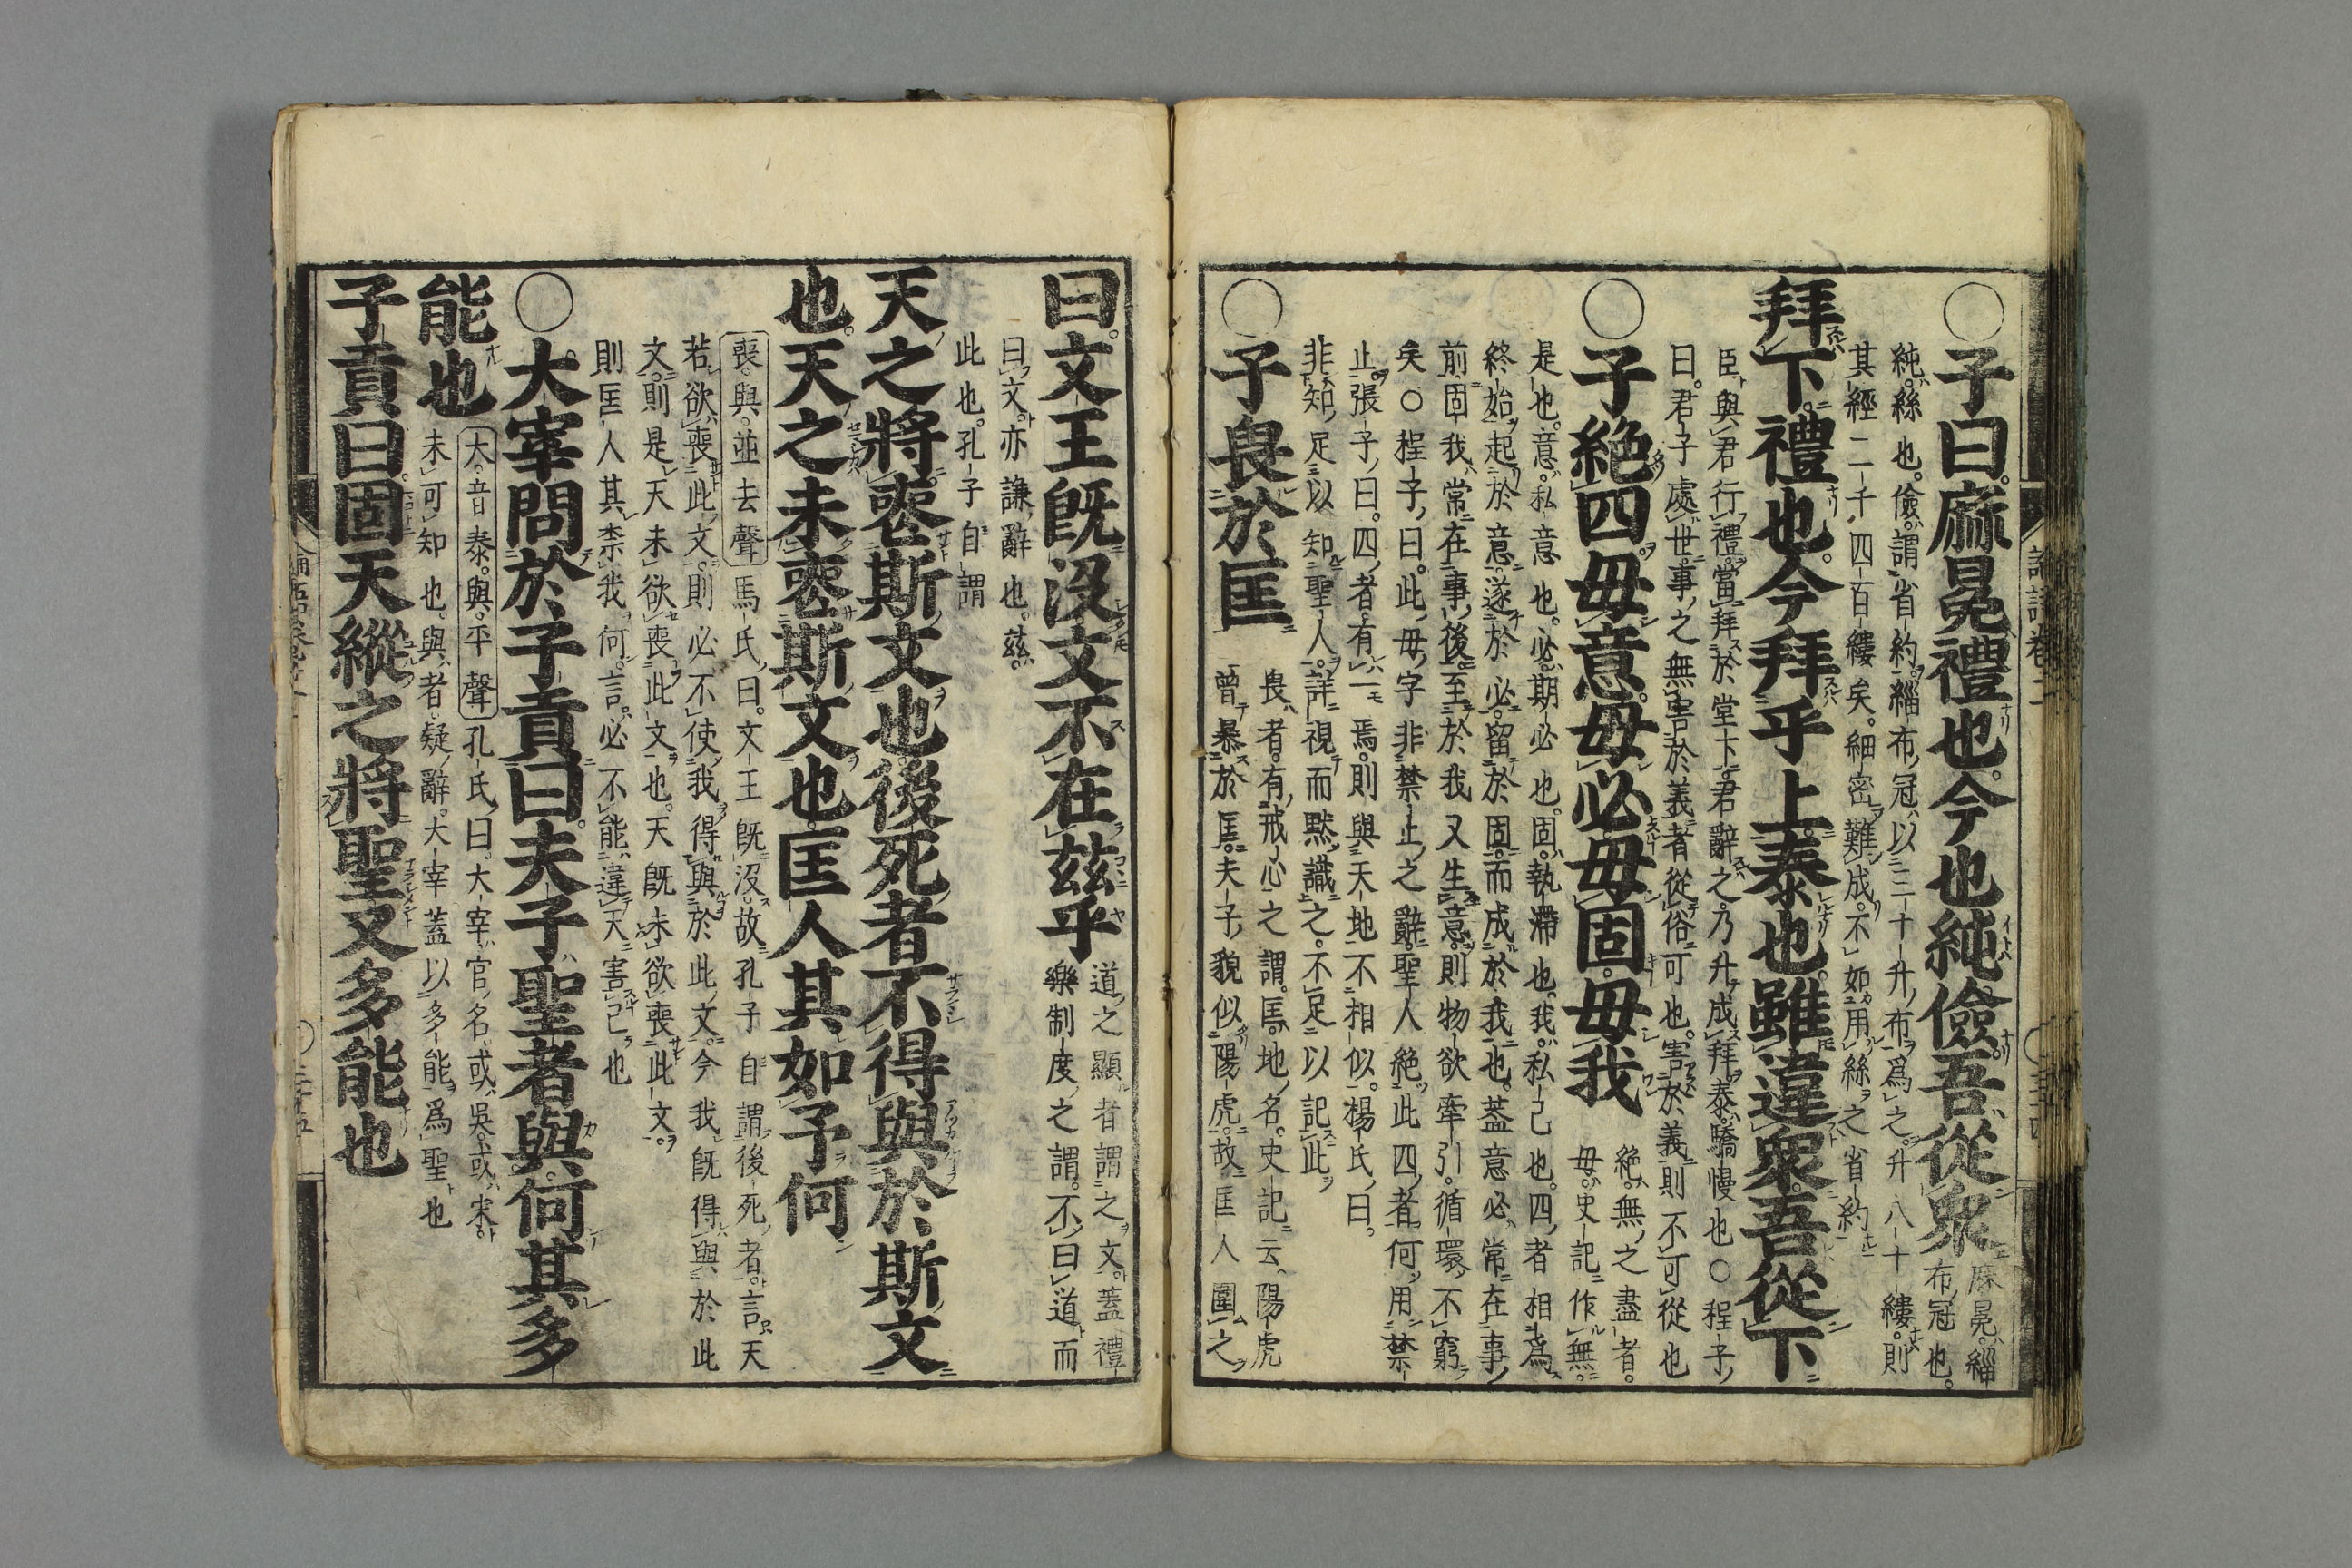 ○子曰。麻冕禮也。今也純儉。吾從衆 麻冕。緇
布冠也。
純。絲也。儉。謂省約。緇布冠。以三十升布爲之。升八十縷。則
其經二千四百縷矣。細密難成。不如用絲之省約
拜下。禮也。今拜乎上。泰也。雖違衆。吾從下
臣與君行禮。當拜於堂下。君辭之。乃升成拜。泰。驕慢也○程子
曰。君子處世。事之無害於義者。從俗可也。害於義。則不可從也
○子絶四。毋意。毋必。毋固。毋我 絶。無之盡者。
毋。史記作無。
是也。意。私意也。必。期必也。固。執滯也。我。私己也。四者相爲
終始。起於意。遂於必。留於固。而成於我也。蓋意必常在事
前。固我常在事後。至於我又生意。則物欲牽引。循環不窮
矣○程子曰。此毋字。非禁止之辭。聖人絶此四者。何用禁
止。張子曰。四者有一焉。則與天地不相似。楊氏曰。
非知足以知聖人。詳視而默識之。不足以記此
○子畏於匡 畏者。有戒心之謂。匡。地名。史記云。陽虎
曾暴於匡。夫子貌似陽虎。故匡人圍之
曰。文王既沒。文不在茲乎 道之顯者謂之文。蓋禮
樂制度之謂。不曰道而
曰文。亦謙辭也。茲。
此也。孔子自謂
天之將喪斯文也。後死者不得與於斯文
也。天之未喪斯文也。匡人其如予何
喪。與。並去聲 馬氏曰。文王既沒。故孔子自謂後死者。言天
若欲喪此文。則必不使我得與於此文。今我既得與於此
文。則是天未欲喪此文也。天既未欲喪此文。
則匡人其禁我何。言。必不能違天害己也
○大宰問於子貢曰。夫子聖者與。何其多
能也 大。音泰。與。平聲 孔氏曰。大宰。官名。或吳。或宋。
未可知也。與者。疑辭。大宰蓋以多能爲聖也
子貢曰。固天縱之將聖。又多能也
論語卷二